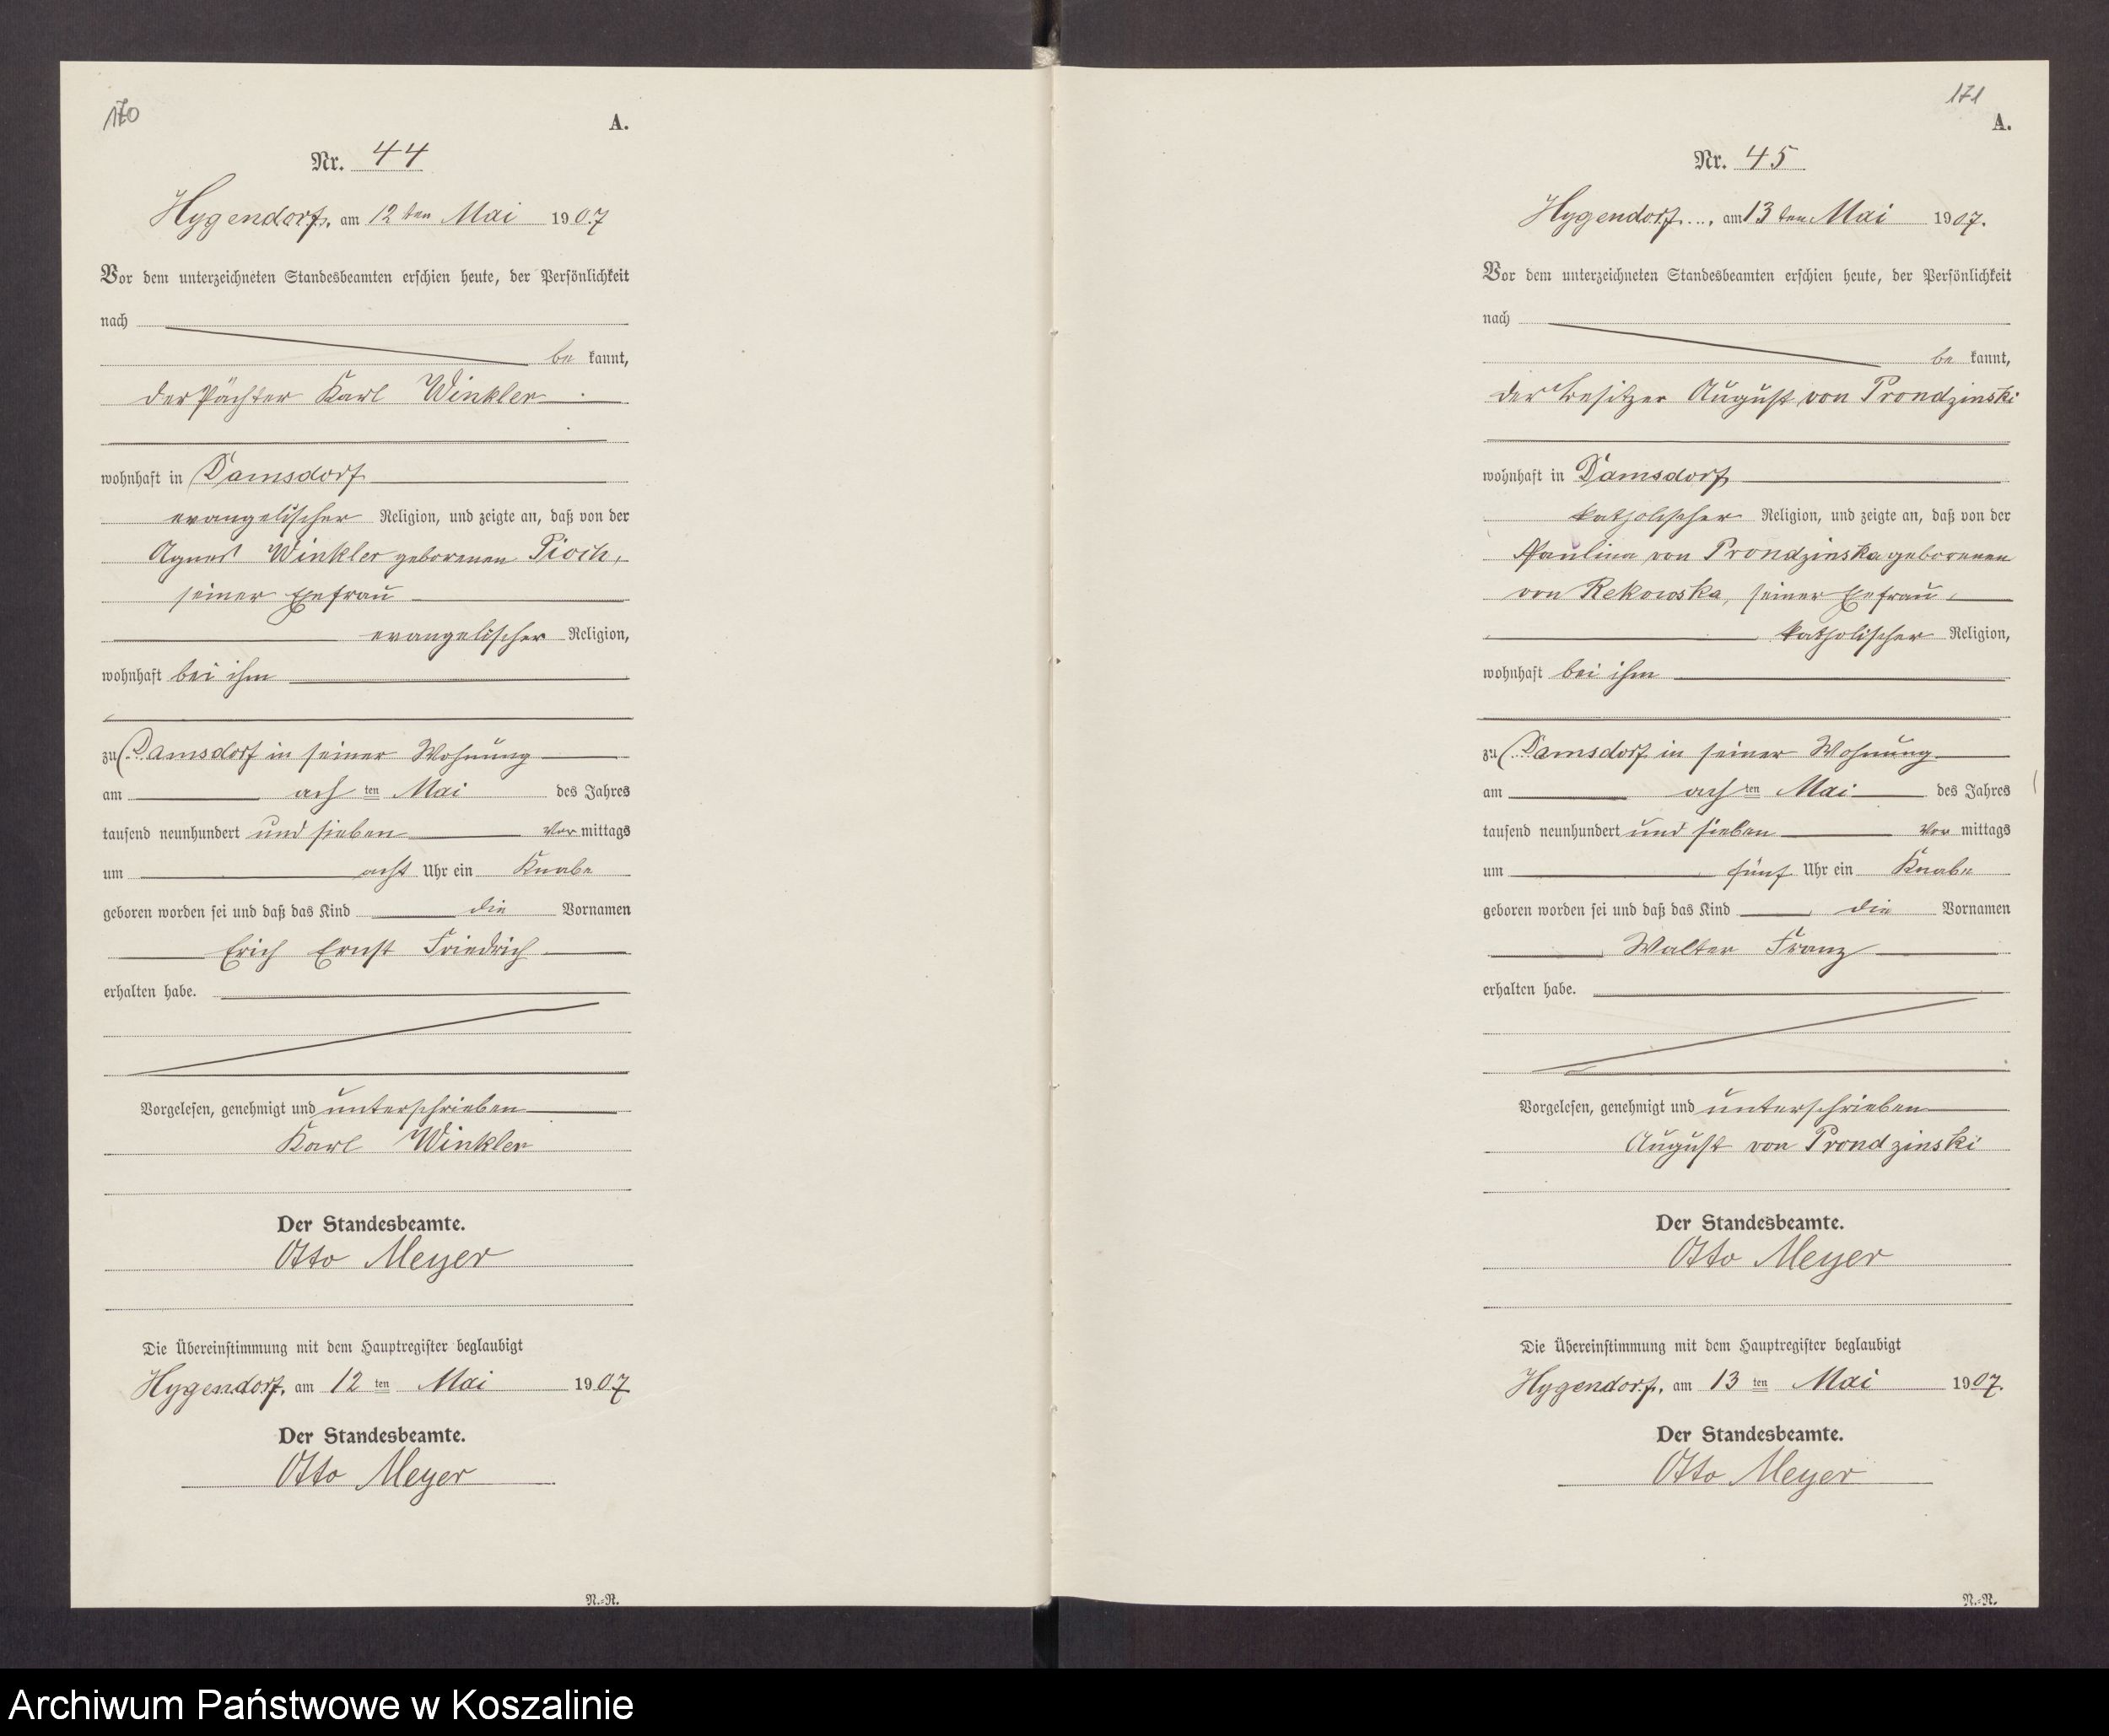 170
A.
Nr. 44
Hygendorf, am 12 ten Mai 1907
Vor dem unterzeichneten Standesbeamten erschien heute, der Persönlichkeit
nach
be kannt,
der Pächter Karl Winkler
wohnhaft in Damsdorf
evangelischer Religion, und zeigte an, daß von der
Agnes Winkler geborenen Pioch,
seiner Ehefrau
evangelischer Religion,
wohnhaft bei ihm
zu Damsdorf in seiner Wohnung
am ach ten Mai des Jahres
tausend neunhundert und sieben Vor mittags
um acht Uhr ein Knabe
geboren worden sei und daß das Kind die Vornamen
Erich Ernst Friedrich
erhalten habe.
Vorgelesen, genehmigt und unterschrieben
Karl Winkler
Der Standesbeamte.
Otto Meyer
Die Übereinstimmung mit dem Hauptregister beglaubigt
Hygendorf, am 12 ten Mai 1907
Der Standesbeamte.
Otto Meyer
N.-R.
171
A.
Nr. 45
Hygendorf, am 13 ten Mai 1907.
Vor dem unterzeichneten Standesbeamten erschien heute, der Persönlichkeit
nach
be kannt,
der Besitzer August von Prondzinski
wohnhaft in Damsdorf
katholischer Religion, und zeigte an, daß von der
Paulina von Prondzinska geborenen
von Rekowska, seiner Ehefrau,
katholischer Religion,
wohnhaft bei ihm
zu Damsdorf in seiner Wohnung
am ach ten Mai des Jahres
tausend neunhundert und sieben Vor mittags
um fünf Uhr ein Knabe
geboren worden sei und daß das Kind die Vornamen
Walter Franz
erhalten habe.
Vorgelesen, genehmigt und unterschrieben
August von Prondzinski
Der Standesbeamte.
Otto Meyer
Die Übereinstimmung mit dem Hauptregister beglaubigt
Hygendorf, am 13 ten Mai 1907.
Der Standesbeamte.
Otto Meyer
N.-R.
Archiwum Państwowe w Koszalinie